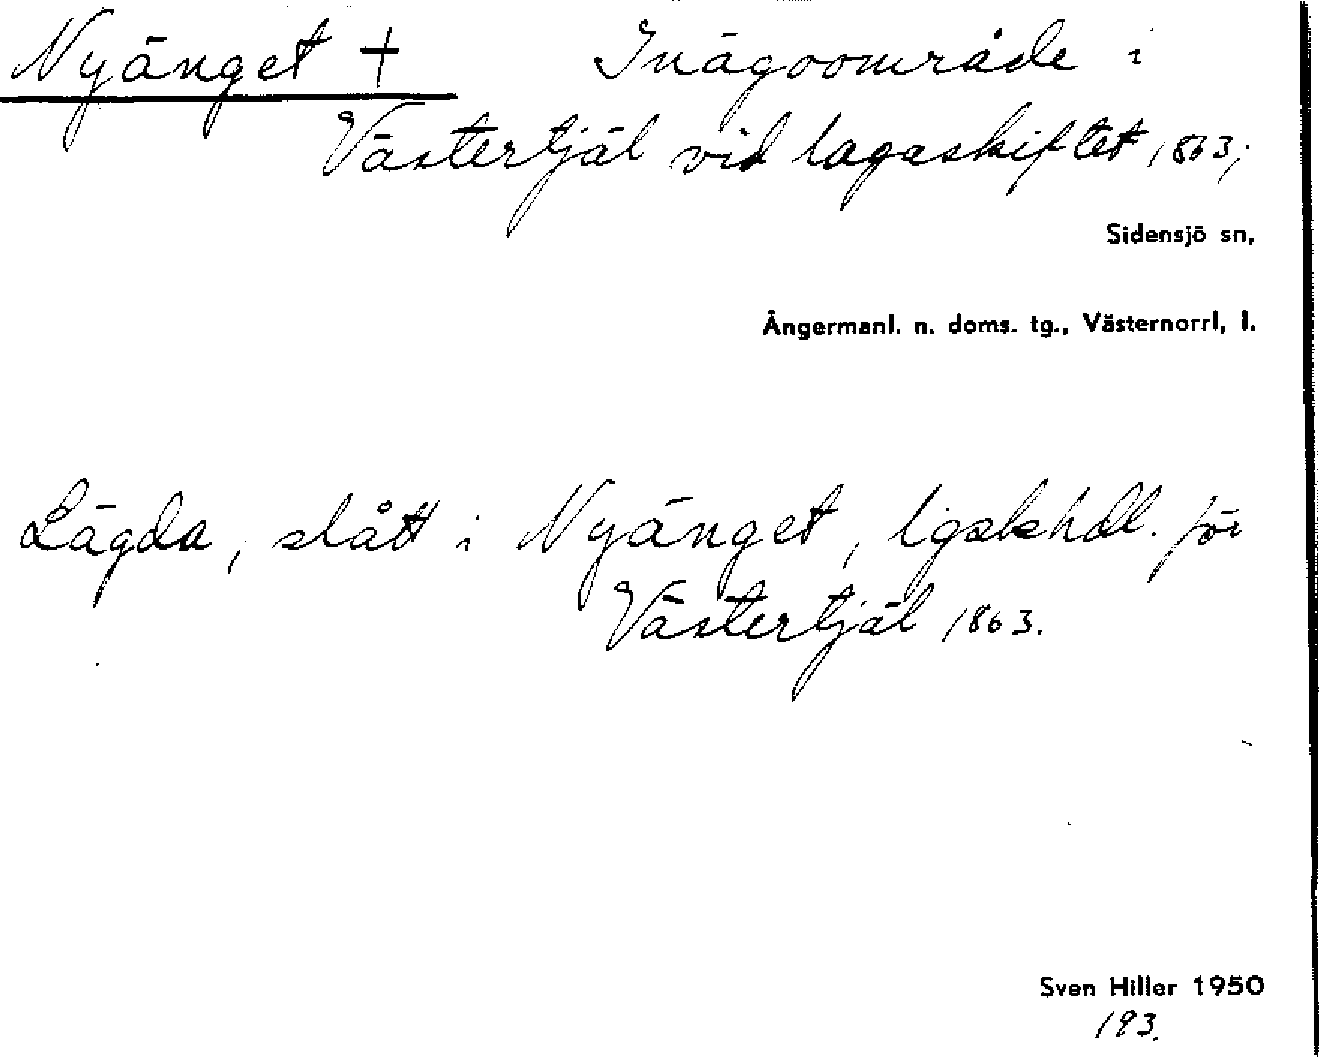 Nyänget + Inägoområde i
Västertjäl vid lagaskiftet 1863;
Sidensjö sn,
Ångermanl. n. doms. tg., Västernorrl, l.
Lägda, slått i Nyänget, lgskhdl. för
Västertjäl 1863.
Sven Hiller 1950
193.